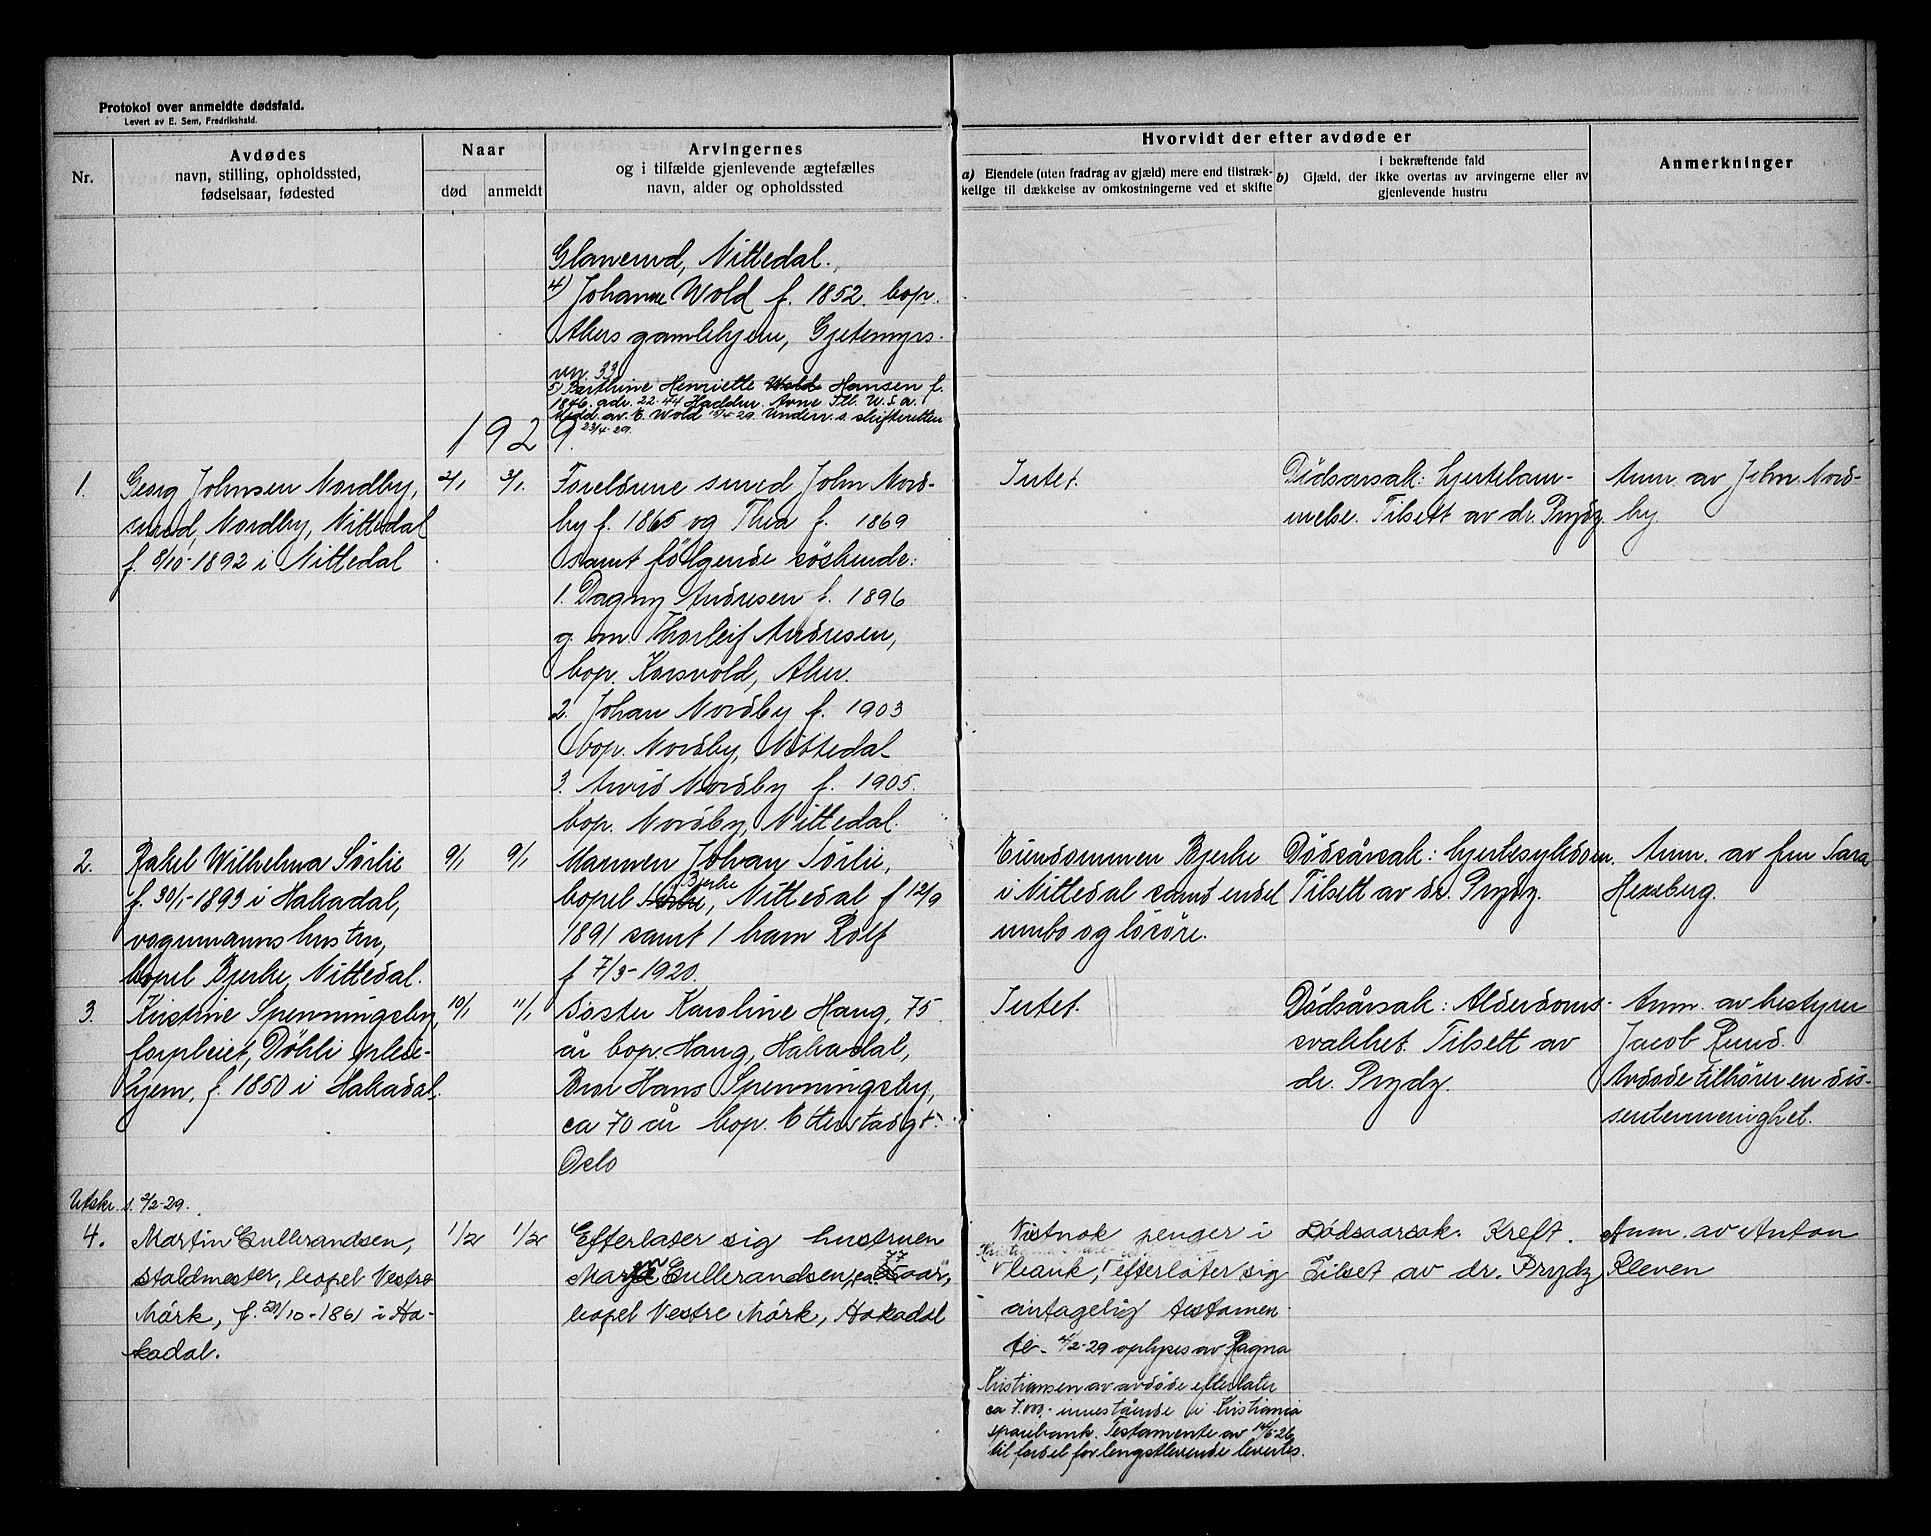 Protokol over anmeldte dødsfald.
Levert av E. Sem, Fredrikshald.
Nr.
Avdødes
navn, stilling, opholdssted,
fødselsaar, fødested
Naar
død
anmeldt
Arvingernes
og i tilfælde gjenlevende ægtefælles
navn, alder og opholdssted
Hvorvidt der efter avdøde er
a) Eiendele (uten fradrag av gjæld) mere end tilstræk-
kelige til dækkelse av omkostningerne ved et skifte
i bekræftende fald
b) Gjæld, der ikke overtas av arvingerne eller av
gjenlevende hustru
Anmerkninger
Glamerud, Nittedal.
4) Johanne Wold f. 1852. bop.
Akers gamlehjem, Gjetemyrs-
vn. 33
5) Barthine Henriette Wold Hansen f.
1846. adr. 22-44 Haddon Avne Ill. U.S.a.
Medd. av E. Wold 15/4-29. Underr. s. skifteretten
23/4-29.
1929.
1.
Georg Johnsen Nordby,
smed, Nordby, Nittedal
f. 8/10-1892 i Nittedal
2/1
3/1.
Foreldrene smed John Nord-
by f. 1865 og Thea f. 1869
samt følgende søskende:
1. Dagny Andresen f. 1896
g. m. Thorleif Andresen,
bop. Korsvold, Aker.
2. Johan Nordby f. 1903
bop. Nordby, Nittedal
3. Arvid Nordby f. 1905.
bop. Nordby, Nittedal.
Intet.
Dødsårsak: hjertelam-
melse. Tilsett av dr. Prydz.
Anm. av John Nord-
by.
2.
Rakel Wilhelma Sørlie
f. 30/1-1893 i Hakadal,
vognmannshustru,
bopel Bjerke, Nittedal.
9/1
9/1
Mannen Johan Sørlie,
bopel Bjerke, Nittedal f 12/9
1891 samt 1 barn Rolf
f 7/3-1920.
Eiendommen Bjerke
i Nittedal samt endel
innbo og løsøre.
Dødsårsak: hjertesykdom.
Tilsett av dr. Prydz.
Anm. av fru Sara
Hexeberg.
3.
Kristine Spenningsby,
forpleiet, Döhli pleie-
hjem, f. 1850 i Hakadal.
10/1
11/1
Søster Karoline Haug, 75
år bop. Haug, Hakadal,
Bror Hans Spenningsby,
ca 70 år bop. Etterstadgt.
Oslo
Intet.
Dødsårsak: Alderdoms-
svakhet. Tilsett av
dr. Prydz.
Anm. av bestyrer
Jacob Ruud.
Avdøde tilhører en dis-
sentermenighet.
Utskr. s. 2/2-29.
4.
Martin Gullerandsen,
staldmester, bopel Vestre
Mörk, f. 20/10-1861 i Ha-
kadal.
1/2
1/2
Efterlater sig hustruen
Gullerandsen, 77 aar,
bopel Vestre Mörk, Hakadal
Vistnok penger i
bank, efterlater sig
antagelig testamen-
te. 4/2-29 oplyses av Ragna
Kristiansen av avdøde efterlater
ca 7.000,- innestående i Kristiania
sparebank. Testamente av 14/5-26
til fordel for lengstlevende levertes.
Dødsaarsak. Kreft.
Tilset av dr. Prydz
Anm av Anton
Kleven